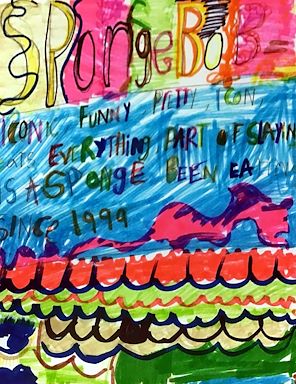 SPongeBoB
ICONIC FUNNY PRETTY, ICON
ATE EVERYTHING, PART OF SLAYIN
IS A SPONGE BEEN EATING
SINCE 1999